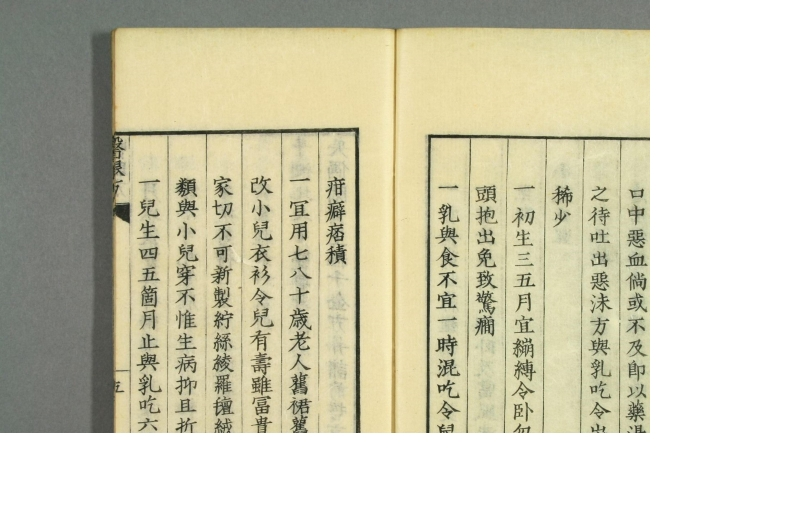 口中惡血倘或不及卽以藥湯
之待吐出惡沫方與乳吃令出
稀少
一初生三五月宜繃縛令卧勿
頭抱出免致驚癇
一乳與食不宜一時混吃令兒
疳癖痞積
一冝用七八十歲老人舊裙舊
改小兒衣衫令兒有壽雖冨貴
家切不可新製紵絲綾羅氊絨
類與小兒穿不惟生病抑且折
一兒生四五箇月止與乳吃六
五